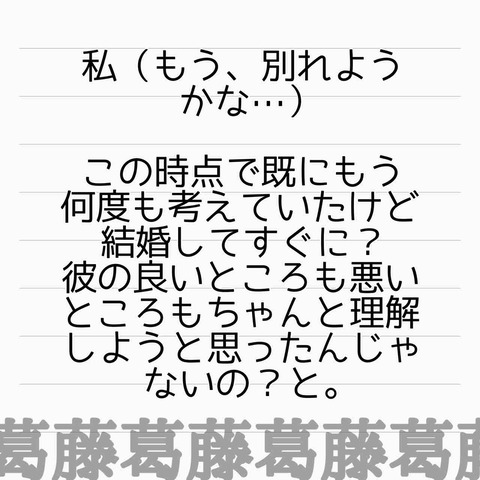 私（もう、別れよう
かな…）
この時点で既にもう
何度も考えていたけど
結婚してすぐに？
彼の良いところも悪い
ところもちゃんと理解
しようと思ったんじゃ
ないの？と。
葛藤葛藤葛藤葛藤